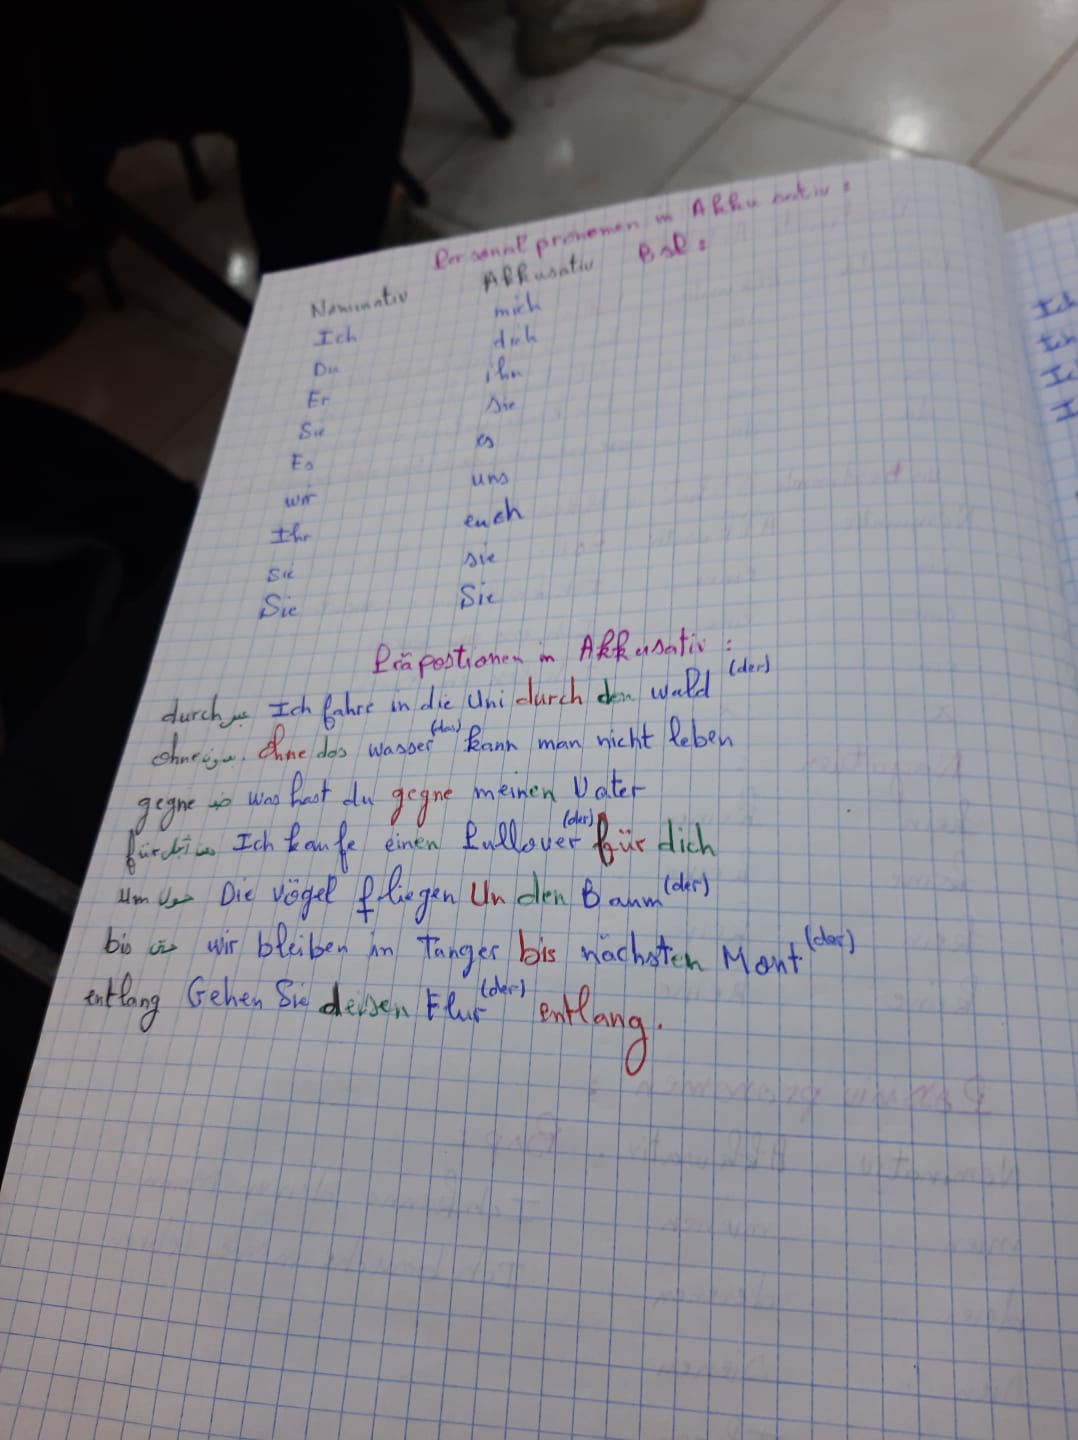 Personnal pronomen in Akkusativ :
Nominativ Akkusativ Bsl :
Ich mich
Du dich
Er ihn
Sie sie
Es es
wir uns
Ihr euch
Sie sie
Sie Sie
Präpostionen in Akkusativ :
durch عبر Ich fahre in die Uni durch den wald (der)
ohne بدون. Ohne das wasser (das) kann man nicht leben
gegne ضد was hast du gegne meinen Vater
für Ich kaufe einen Pullover (der) für dich
um حول Die vögel fliegen Un den Baum (der)
bis حتى wir bleiben in Tanger bis nächsten Mont (der)
entlang Gehen Sie deisen Flur (der) entlang.
Ich
Ich